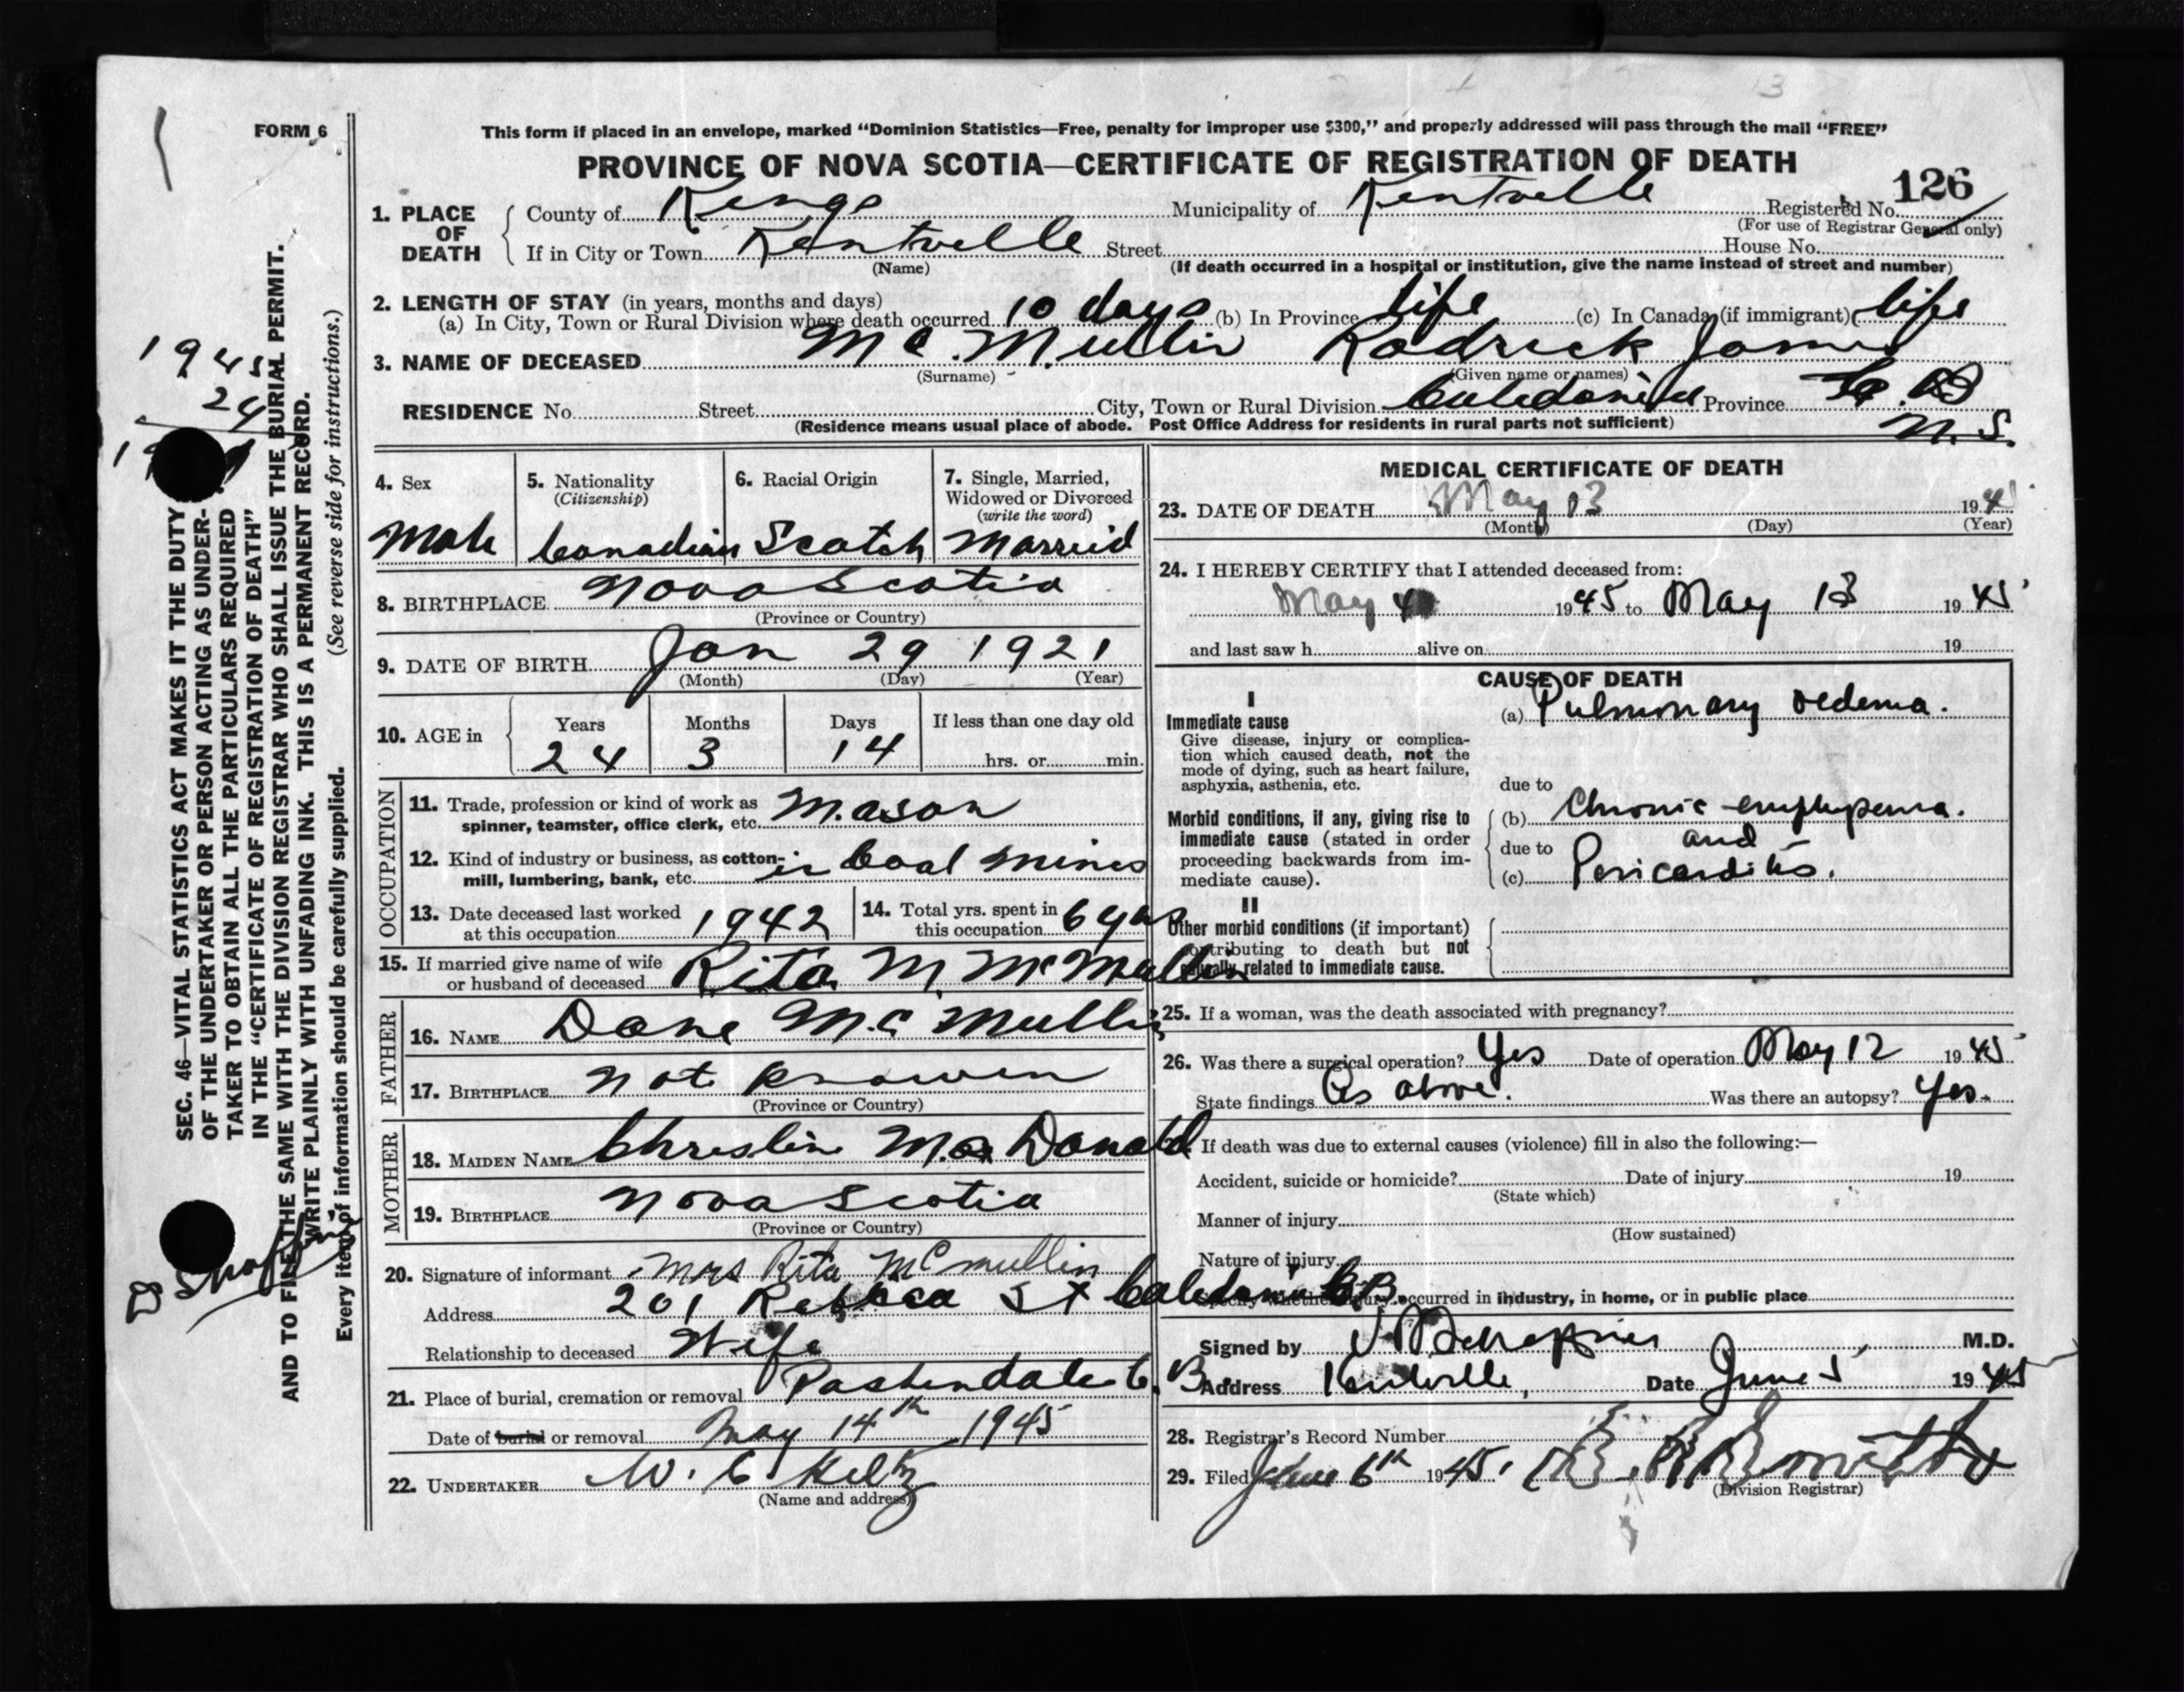 FORM 6
This form if placed in an envelope, marked “Dominion Statistics—Free, penalty for improper use $300,” and properly addressed will pass through the mail “FREE”
PROVINCE OF NOVA SCOTIA—CERTIFICATE OF REGISTRATION OF DEATH
126
1. PLACE OF DEATH
County of Kings Municipality of Kentville Registered No.
(For use of Registrar General only)
If in City or Town Kentville Street House No.
(Name) (If death occurred in a hospital or institution, give the name instead of street and number)
2. LENGTH OF STAY (in years, months and days)
(a) In City, Town or Rural Division where death occurred 10 days (b) In Province life (c) In Canada (if immigrant) life
3. NAME OF DECEASED Mc.Mullin Rodrick James
(Surname) (Given name or names)
RESIDENCE No Street City, Town or Rural Division Caledonia Province C.B
(Residence means usual place of abode. Post Office Address for residents in rural parts not sufficient) N.S.
4. Sex 5. Nationality (Citizenship) 6. Racial Origin 7. Single, Married, Widowed or Divorced (write the word)
Male Canadian Scotch Married
8. BIRTHPLACE Nova Scotia
(Province or Country)
9. DATE OF BIRTH Jan 29 1921
(Month) (Day) (Year)
10. AGE in Years Months Days If less than one day old
24 3 14 hrs. or min.
OCCUPATION
11. Trade, profession or kind of work as
spinner, teamster, office clerk, etc. Mason
12. Kind of industry or business, as cotton-
mill, lumbering, bank, etc. in Coal Mines
13. Date deceased last worked
at this occupation 1942
14. Total yrs. spent in
this occupation 6 yrs
15. If married give name of wife
or husband of deceased Rita M. McMullin
FATHER
16. NAME Dane Mc Mullin
17. BIRTHPLACE not knowen
(Province or Country)
MOTHER
18. MAIDEN NAME Chrestine Mac Donald
19. BIRTHPLACE Nova Scotia
(Province or Country)
20. Signature of informant Mrs Rita McMullin
Address 201 Rebecca St Caledonia C.B.
Relationship to deceased Wife
21. Place of burial, cremation or removal Pashendale C.B.
Date of burial or removal May 14th 1945
22. UNDERTAKER W. C.
(Name and address)
MEDICAL CERTIFICATE OF DEATH
23. DATE OF DEATH May 13 1945
(Month) (Day) (Year)
24. I HEREBY CERTIFY that I attended deceased from:
May 4 1945 to May 13 1945
and last saw h alive on 19
CAUSE OF DEATH
I
Immediate cause
Give disease, injury or complica-
tion which caused death, not the
mode of dying, such as heart failure,
asphyxia, asthenia, etc.
(a) Pulmonary oedema.
due to
Morbid conditions, if any, giving rise to
immediate cause (stated in order
proceeding backwards from im-
mediate cause).
(b) Chronic empyema.
due to and
(c) Pericarditis.
II
Other morbid conditions (if important)
contributing to death but not
causally related to immediate cause.
25. If a woman, was the death associated with pregnancy?
26. Was there a surgical operation? Yes Date of operation May 12 1945
State findings As above. Was there an autopsy? Yes.
If death was due to external causes (violence) fill in also the following:—
Accident, suicide or homicide? Date of injury 19
(State which)
Manner of injury
(How sustained)
Nature of injury
Specify whether injury occurred in industry, in home, or in public place
Signed by M.D.
Address Kentville, Date June 5, 1945
28. Registrar's Record Number
29. Filed June 6th 1945.
(Division Registrar)
SEC. 46—VITAL STATISTICS ACT MAKES IT THE DUTY
OF THE UNDERTAKER OR PERSON ACTING AS UNDER-
TAKER TO OBTAIN ALL THE PARTICULARS REQUIRED
IN THE “CERTIFICATE OF REGISTRATION OF DEATH”
AND TO FILE THE SAME WITH THE DIVISION REGISTRAR WHO SHALL ISSUE THE BURIAL PERMIT.
WRITE PLAINLY WITH UNFADING INK. THIS IS A PERMANENT RECORD.
Every item of information should be carefully supplied. (See reverse side for instructions.)
1945
24